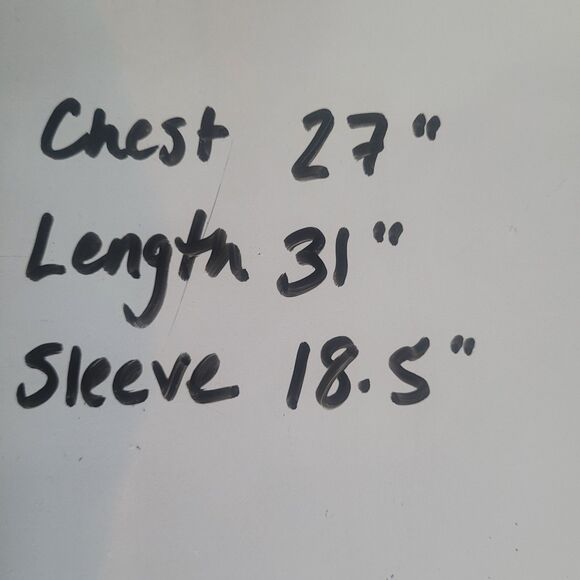 Chest 27"
Length 31"
Sleeve 18.5"